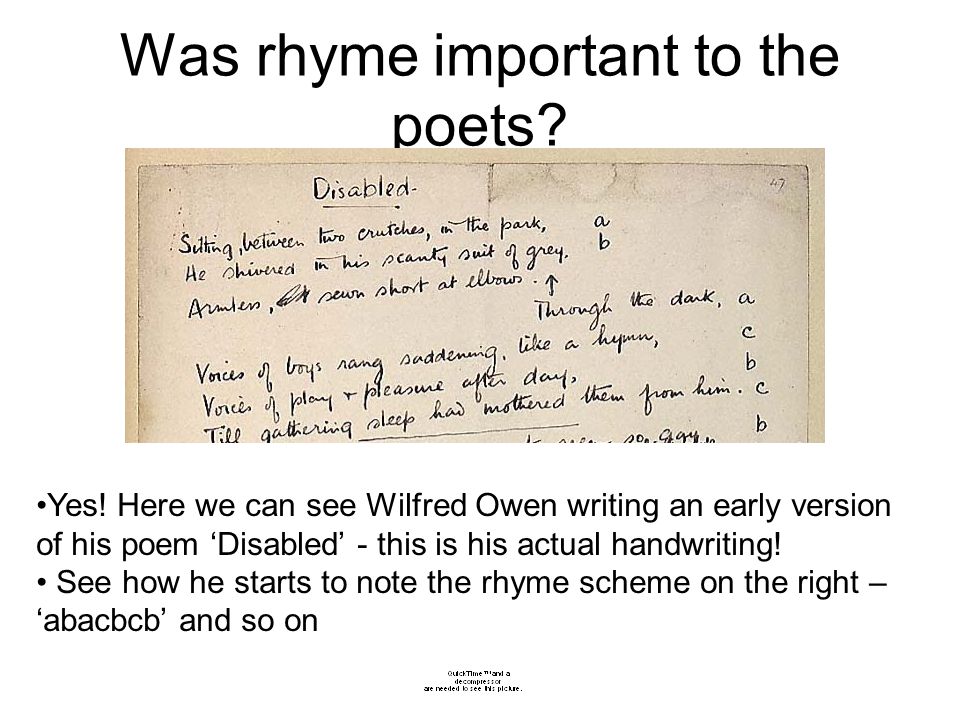 Was rhyme important to the
poets?
Disabled- 47
Sitting, between two crutches, in the park, a
He shivered in his scanty suit of grey. b
Armless, sewn short at elbows. ↑
Through the dark, a
Voices of boys rang saddening, like a hymn, c
Voices of play + pleasure after day, b
Till gathering sleep had mothered them from him. c
b
•Yes! Here we can see Wilfred Owen writing an early version
of his poem ‘Disabled’ - this is his actual handwriting!
• See how he starts to note the rhyme scheme on the right –
‘abacbcb’ and so on
QuickTime™ and a
decompressor
are needed to see this picture.